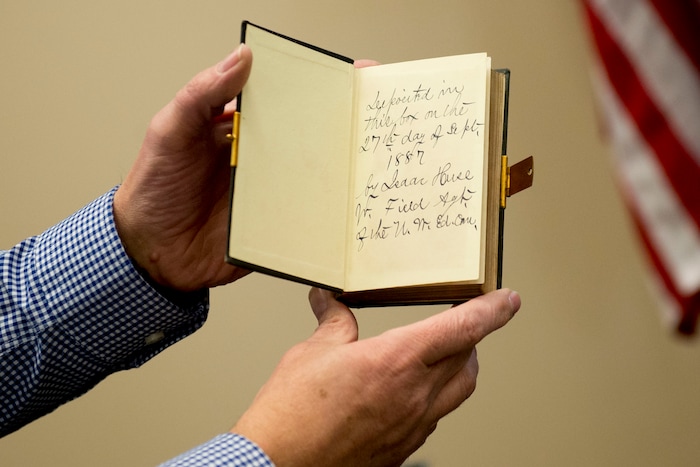 Deposited in
this box on the
27th day of Sept.
1887
by Isaac House
Jr. Field Agt.
of the N. W. Ed. Com.